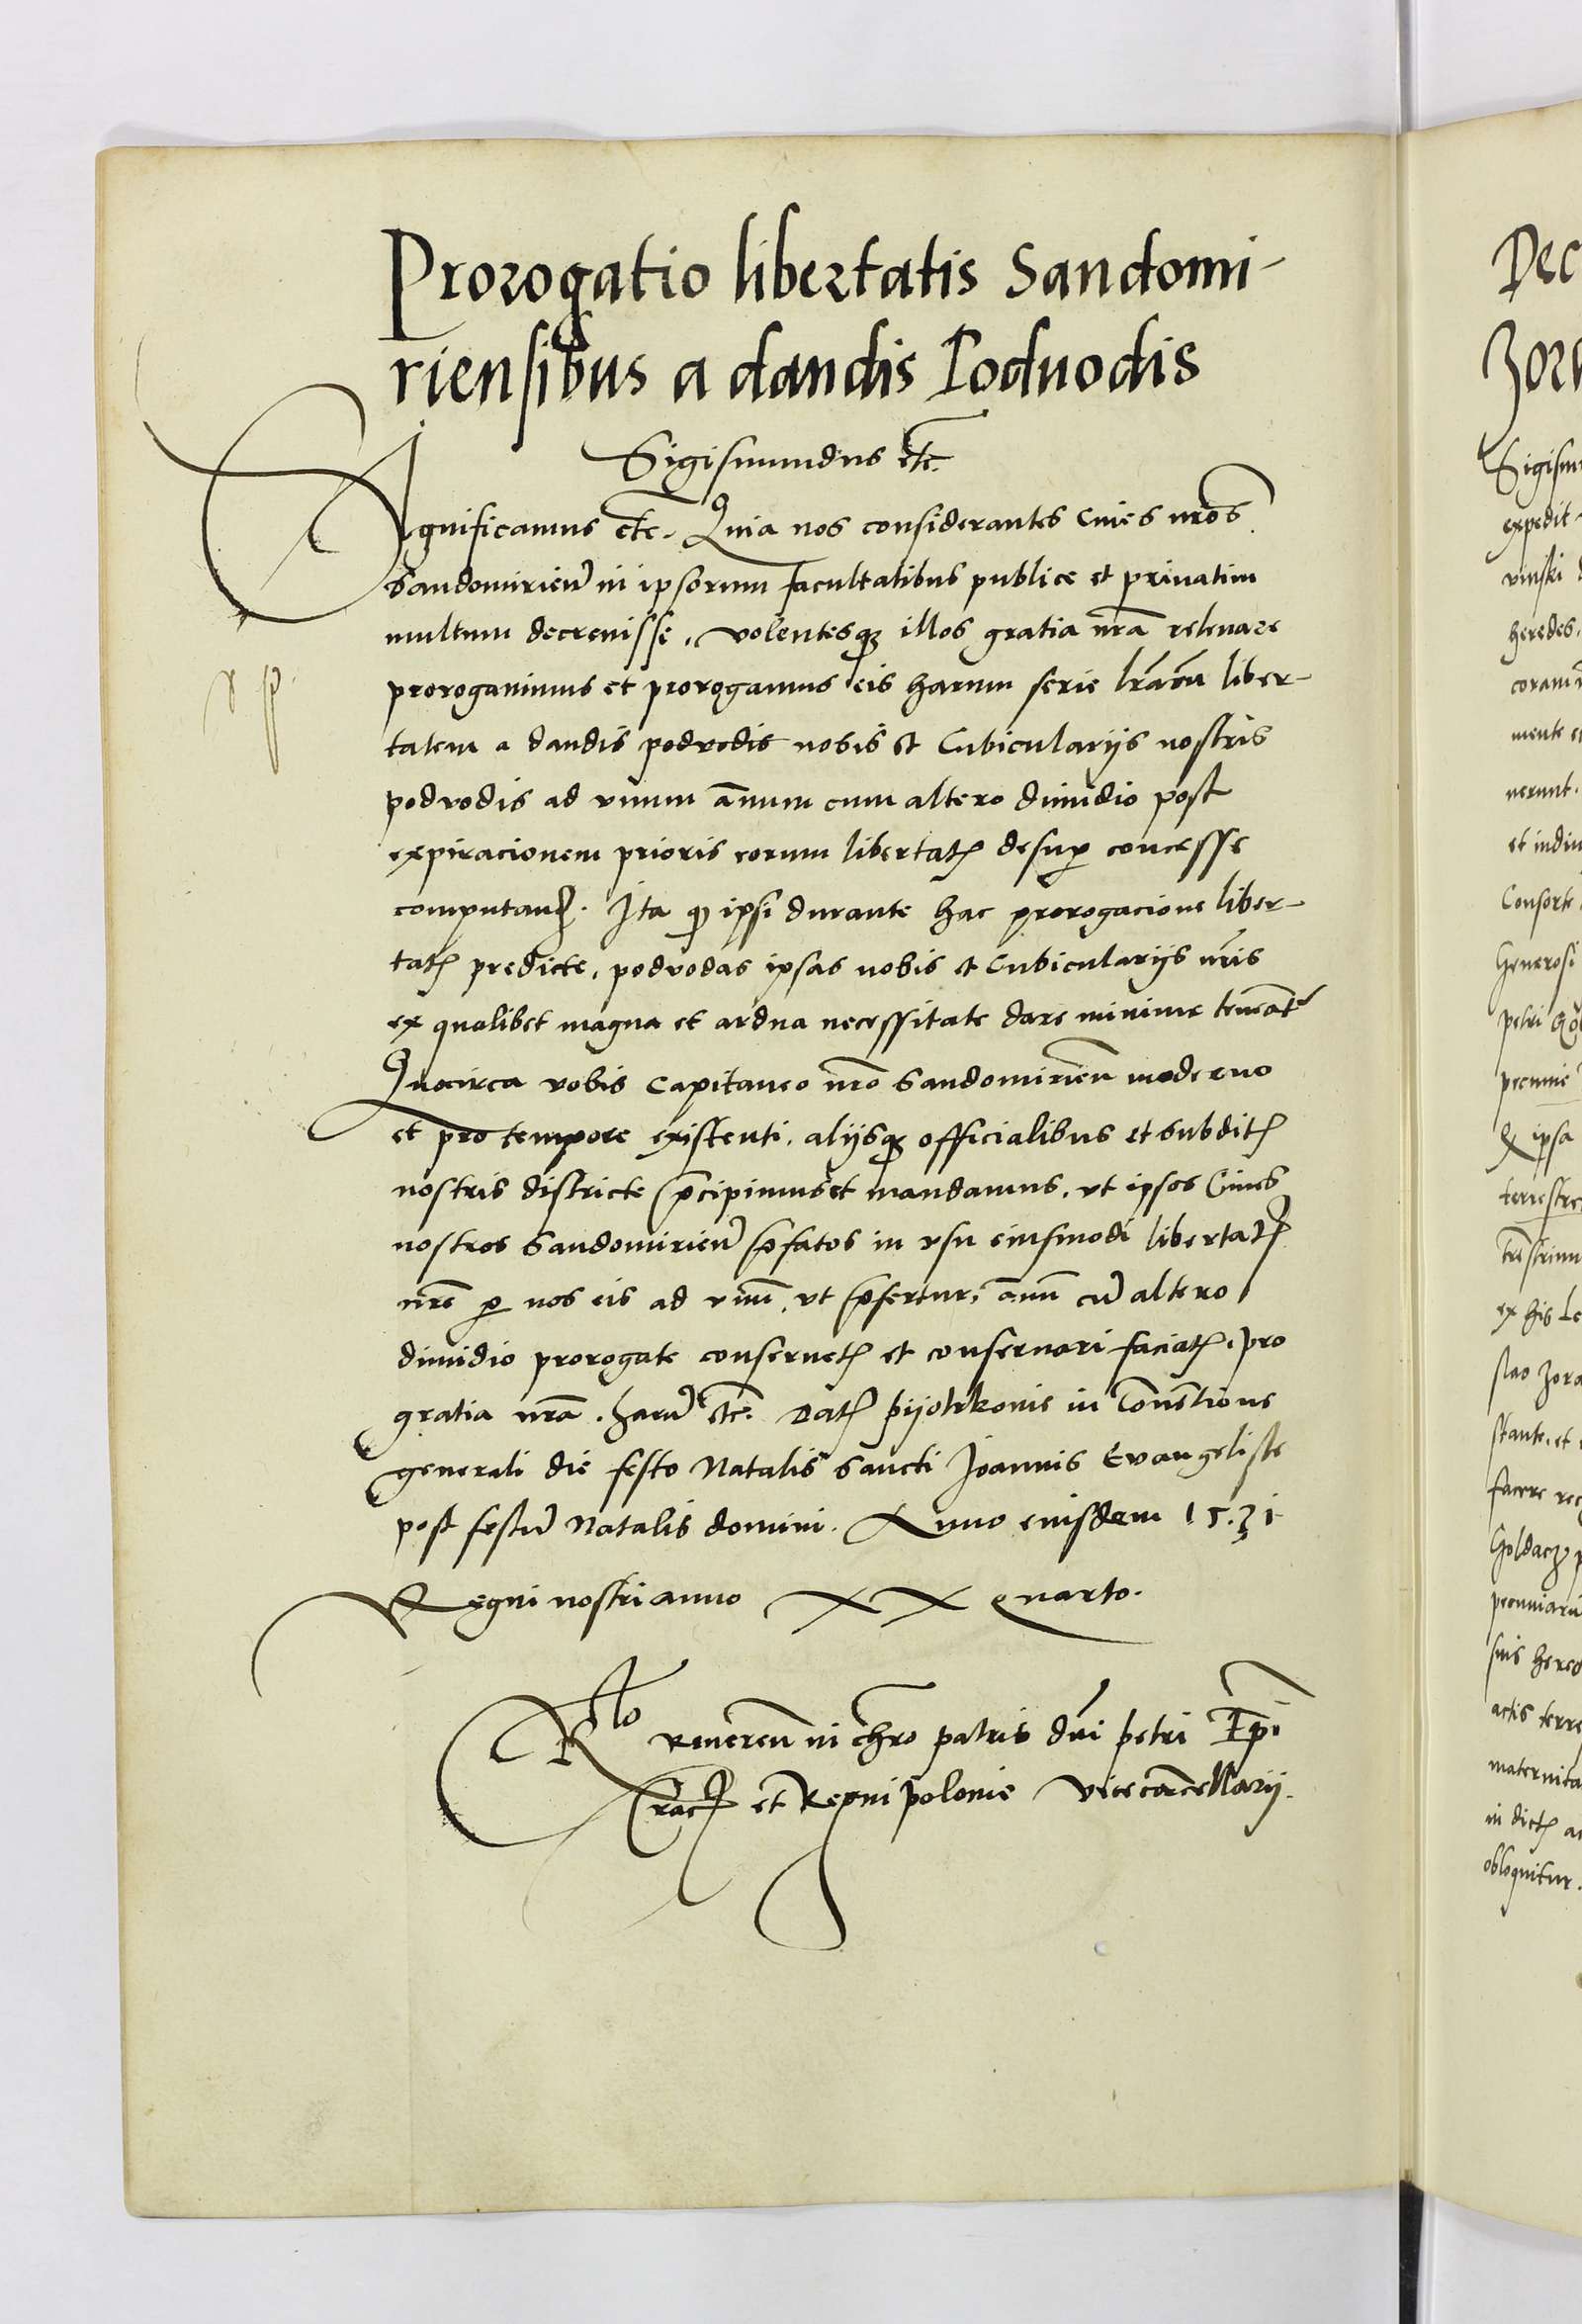 Prorogatio libertatis Sandomi-
riensibus a dandis Poduodis
Sigismundus etc.
Significamus etc. Quia nos considerantes Ciues nros
Sandomirien in ipsorum facultatibus publice et priuatim
multum decreuisse, volentesq illos gratia nra releuare
prorogauimus et prorogamus eis harum serie lrarum liber-
tatem a dandis podvodis nobis et Cubicularijs nostris
podvodis ad vnum annum cum altero dimidio post
expiracionem prioris eorum libertatis desup concesse
computand. Ita q ipsi durante hac prorogacione liber-
tatis predicte, podvodas ipsas nobis et Cubicularijs nris
ex qualibet magna et ardua necessitate dare minime teneant
Quocirca vobis Capitaneo nro Sandomirien moderno
et pro tempore existenti, alijsq officialibus et subditis
nostris districte pcipimus et mandamus, vt ipsos Ciues
nostros Sandomirien pfatos in vsu eiusmodi libertatis
nre p nos eis ad vnum, vt pfertur, annum cu altero
dimidio prorogate conseruetis et conseruari faciatis, pro
gratia nra. haru etc. Datis pijotrkouie in Conuentione
generali die festo Natalis Sancti Joannis Euangeliste
post festu Natalis domini. Anno eiusdem 1531
Regni nostri anno XX quarto.
Rlo Reueren in chro patris dni petri Epi
Crac et Regni polonie Vicecancellarij.
Dec
Zor
Sigism
expedit
vinski
heredes.
coram
mente e
nerunt.
et indiu
Consorte
Generosi
petri
pecunie
ipsa
terrestre
ex his
slao Zora
stante, et
facere re
Goldacz
pecuniaru
suis hered
actis terre
maternita
in dictis a
obloquitur.